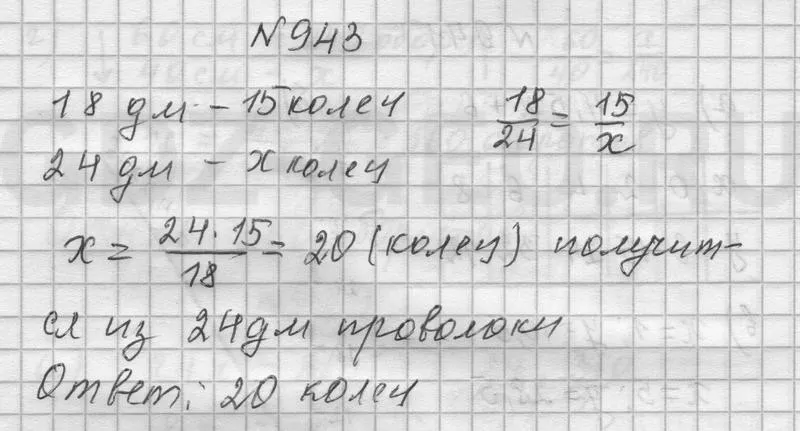 N943
18 дм - 15 колец 18/24 = 15/x
24 дм - x колец
x = 24·15/18 = 20 (колец) получит-
ся из 24 дм проволоки
Ответ: 20 колец